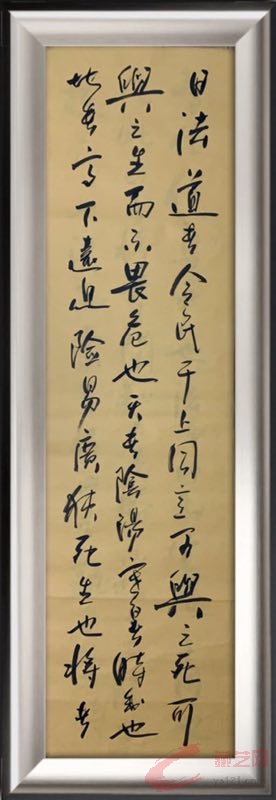 曰法道者令民于上同意可與之死可
與之生而不畏危也天者陰陽寒暑時制也
地者高下遠近險易廣狹死生也將者